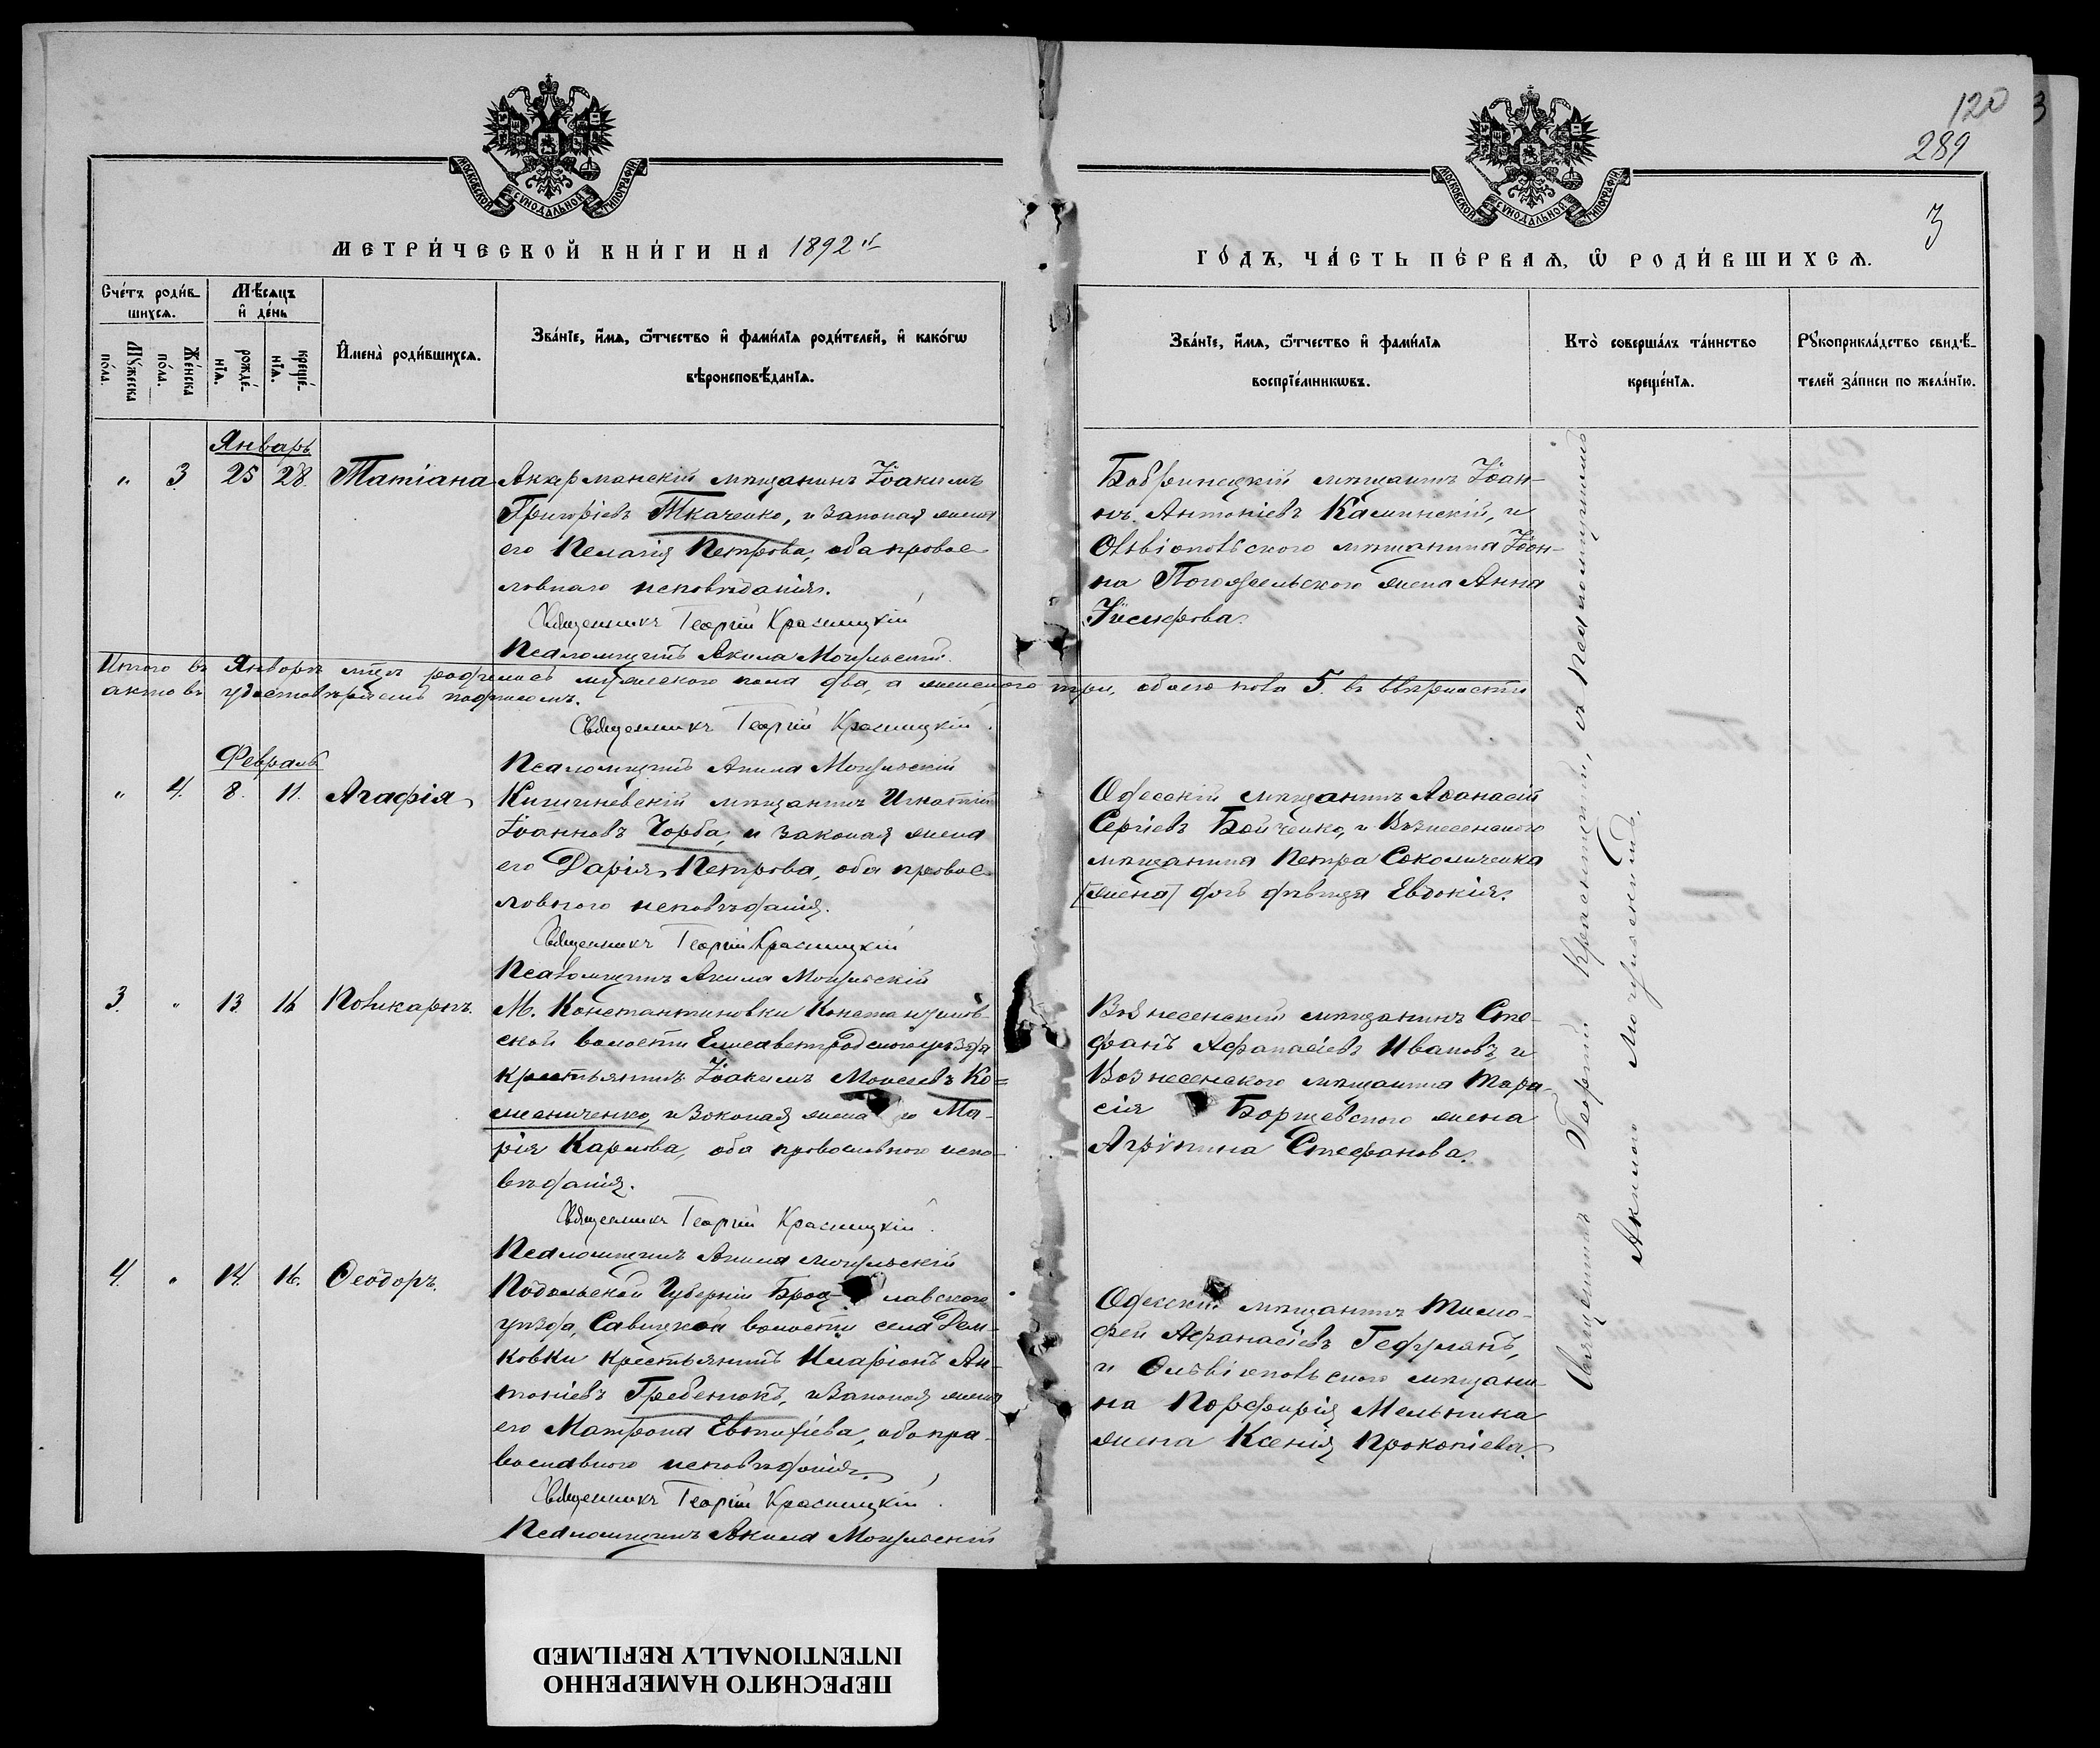 120
289
3
3
МОСКОВСКОЙ СѴНОДАЛЬНОЙ ТИПОГРАФІИ
МОСКОВСКОЙ СѴНОДАЛЬНОЙ ТИПОГРАФІИ
МЕТРИ́ЧЕСКОЙ КНИ́ГИ НА 1892 й
ГО́ДЪ, ЧА́СТЬ ПЕ́РВАѦ, Ѿ РОДИ́ВШИХСѦ.
Сче́тъ роди́в-
шихсѧ.
Мꙋ́жеска
по́ла.
Же́нска
по́ла.
Мѣ́сѧцъ
и҆ де́нь
рожде́-
нїѧ.
креще́-
нїѧ.
И҆мена̀ роди́вшихсѧ.
Зва́нїе, и҆́мѧ, ѻ҆́тчество и҆ фами́лїѧ роди́телей, и҆ како́гѡ
вѣроисповѣ́данїѧ.
Зва́нїе, и҆́мѧ, ѻ҆́тчество и҆ фами́лїѧ
воспрїе́мникѡвъ.
Кто̀ соверша́лъ та́инство
креще́нїѧ.
Рꙋкоприкла́дство свидѣ́-
телей за́писи по жела́нїю.
Январь
" 3. 25 28. Татіана
Аккерманскій мѣщанинъ Іоакимъ
Григоріевъ Ткаченко, и законая жена
его Пелагія Петрова, оба правос-
лавнаго исповѣданія.
Священникъ Георгій Красницкій
Псаломщикъ Акила Могульскій
Бобринецкій мѣщанинъ Іоан-
нъ Антоніевъ Каминскій, и
Ольвіопольского мѣщанина Іоан-
на Погожельского жена Анна
Іосифова.
Итого въ Январѣ м-цѣ родилось мужеского пола два, а женского три, обоего пола 5. въ вѣрности
актовъ удостовѣряемъ подписомъ.
Священникъ Георгій Красницкій
Псаломщикъ Акила Могульскій
Февраль
" 4. 8. 11. Агафія
Кишинёвскій мѣщанинъ Игнатій
Іоанновъ Чорба, и законая жена
его Дарія Петрова, оба правос-
лавного исповѣданія.
Священникъ Георгій Красницкій
Псаломщикъ Акила Могульскій
Одесскій мѣщанинъ Аѳанасій
Сергіевъ Бойченко, и Вознесенского
мѣщанина Петра Соколиченка
[жена] дочь дѣвица Евдокія.
3. " 13. 16. Поликарпъ.
М. Константиновки Константинов-
ской волости Елисаветградского уѣзда
крестьянинъ Іоакимъ Моисеевъ Ко=
женниченко, и Законая жена его Ма-
рія Карпова, оба православного испо-
вѣданія.
Священникъ Георгій Красницкій
Псаломщикъ Акила Могульскій
Вознесенскій мѣщанинъ Сте-
фанъ Афанасіевъ Ивановъ, и
Вознесенского мѣщанина Тара-
сія Боржевского жена
Агрипина Стефанова.
4. " 14. 16. Ѳеодоръ.
Подольской Губерніи Брац-лавского
уѣзда, Савицкой волости села Дем-
ковки крестьянинъ Иларіонъ Ан-
тоніевъ Гребенюкъ, и Законая жена
его Матрона Евтифіева, оба пра-
вославного исповѣданія.
Священникъ Георгій Красницкій
Псаломщикъ Акила Могульскій
Одесскій мѣщанинъ Тимо-
фей Афанасіевъ Гедулянъ,
и Ольвіопольского мѣщани-
на Порфирія Мельника
жена Ксенія Прокопіева.
Священникъ Георгій Красницкій, и Псаломщикъ
Акила Могульскій.
ПЕРЕСНЯТО НАМЕРЕННО
INTENTIONALLY REFILMED